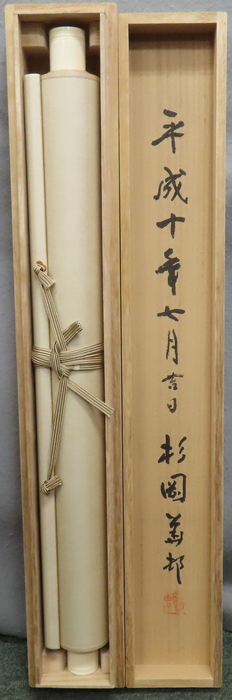 平成十年七月吉日 杉岡華邨